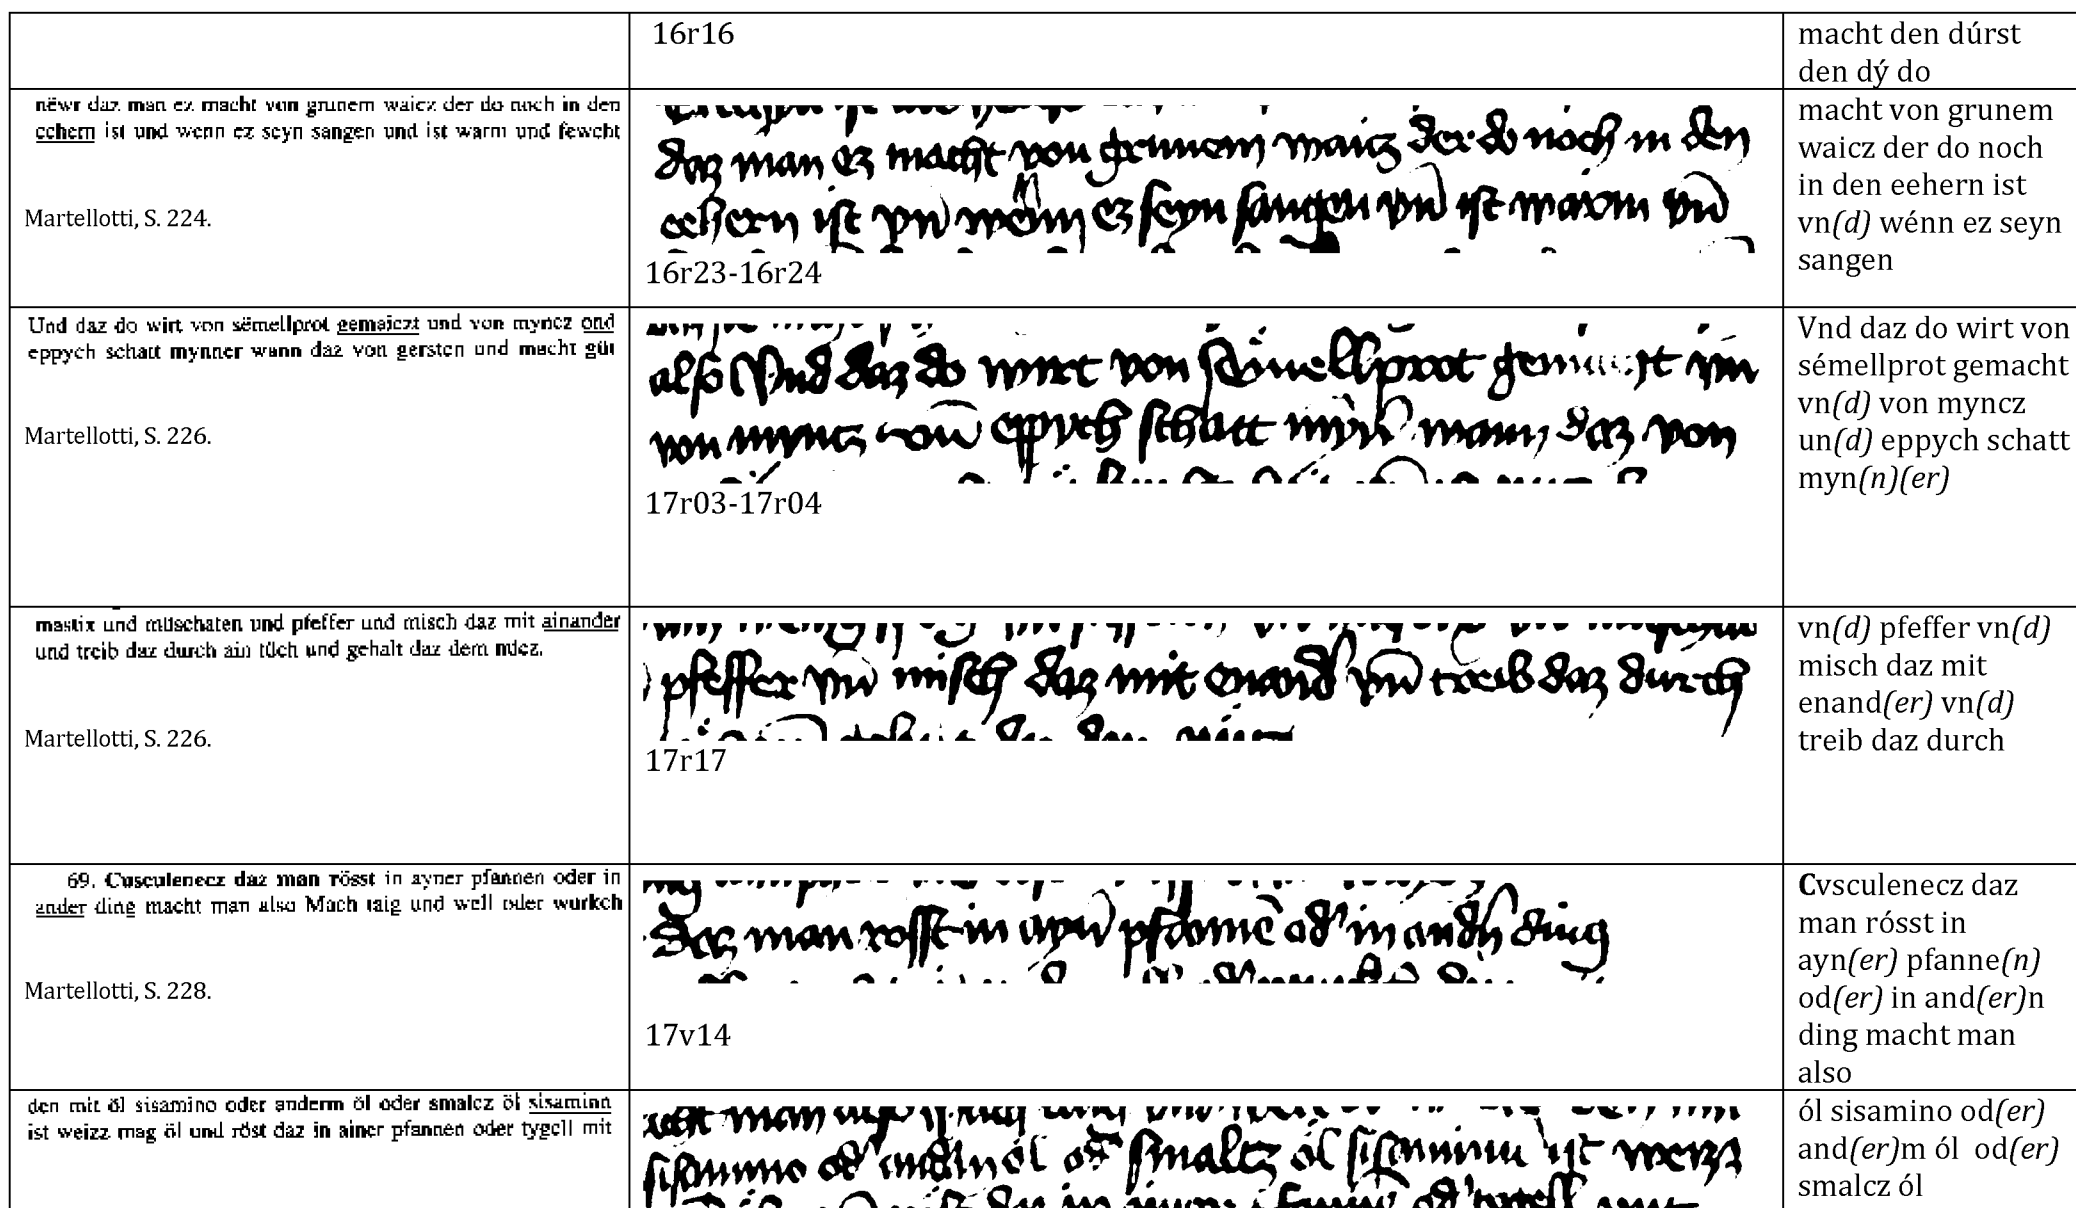 16r16
macht den dúrst
den dý do
nëwr daz man ez macht von grunem waicz der do noch in den
eehern ist und wenn ez seyn sangen und ist warm und fewcht
Martellotti, S. 224.
daz man ez macht von grunem waicz der do noch in den
eehern ist vn wénn ez seyn sangen vn ist warm vn
16r23-16r24
macht von grunem
waicz der do noch
in den eehern ist
vn(d) wénn ez seyn
sangen
Und daz do wirt von sëmellprot gemaiczt und von myncz ond
eppych schatt mynner wann daz von gersten und macht güt
Martellotti, S. 226.
also Vnd daz do wirt von sémellprot vn
von myncz vn eppych schatt myn wann daz von
17r03-17r04
Vnd daz do wirt von
sémellprot gemacht
vn(d) von myncz
un(d) eppych schatt
myn(n)(er)
mastix und müschaten und pfeffer und misch daz mit ainander
und treib daz durch ain tüch und gehalt daz dem nücz.
Martellotti, S. 226.
pfeffer vn misch daz mit enand vn treib daz durch
17r17
vn(d) pfeffer vn(d)
misch daz mit
enand(er) vn(d)
treib daz durch
69. Cusculenecz daz man rösst in ayner pfannen oder in
ander ding macht man also Mach taig und well oder wurkch
Martellotti, S. 228.
Daz man rosst in ayn pfanne od in andn ding
17v14
Cvsculenecz daz
man rósst in
ayn(er) pfanne(n)
od(er) in and(er)n
ding macht man
also
den mit öl sisamino oder anderm öl oder smalcz öl sisaminn
ist weizz mag öl und röst daz in ainer pfannen oder tygell mit
sisamino od andm ól od smaltz ól sisaminn ist weizz
ól sisamino od(er)
and(er)m ól od(er)
smalcz ól